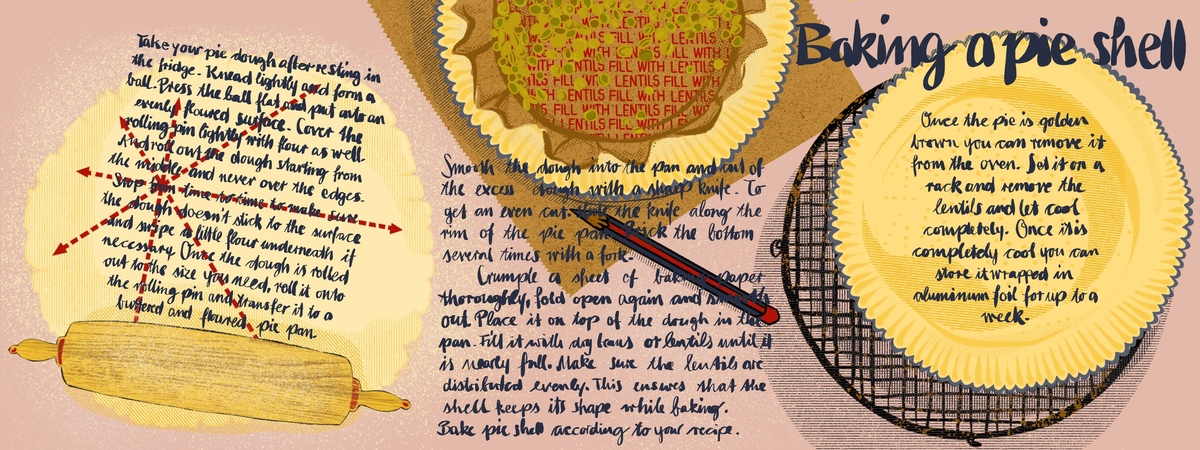 Baking a pie shell
Take your pie dough after resting in
the fridge. Knead lightly and form a
ball. Press the ball flat and put onto an
evenly floured surface. Cover the
rolling pin lightly with flour as well.
And roll out the dough starting from
the middle and never over the edges.
Stop from time to time to make sure
the dough doesn't stick to the surface
and swipe a little flour underneath if
necessary. Once the dough is rolled
out to the size you need, roll it onto
the rolling pin and transfer it to a
buttered and floured pie pan.
LENTILS FILL WITH
LENTILS FILL WITH L
WITH LENTILS FILL WITH LENTILS
LENTILS FILL WITH LENTILS FILL WITH
FILL WITH LENTILS FILL WITH
LENTILS FILL WITH LENTILS FILL
WITH LENTILS FILL WITH
LENTILS FILL WITH
Smooth the dough into the pan and cut of
the excess dough with a sharp knife. To
get an even cut. the knife along the
rim of the pie pan. the bottom
several times with a fork.
Crumple a sheet of baking paper
thoroughly, fold open again and
out. Place it on top of the dough in the
pan. Fill it with dry beans or lentils until it
is nearly full. Make sure the lentils are
distributed evenly. This ensures that the
shell keeps its shape while baking.
Bake pie shell according to your recipe.
Once the pie is golden
brown you can remove it
from the oven. Set it on a
rack and remove the
lentils and let cool
completely. Once it is
completely cool you can
store it wrapped in
aluminum foil for up to a
week.